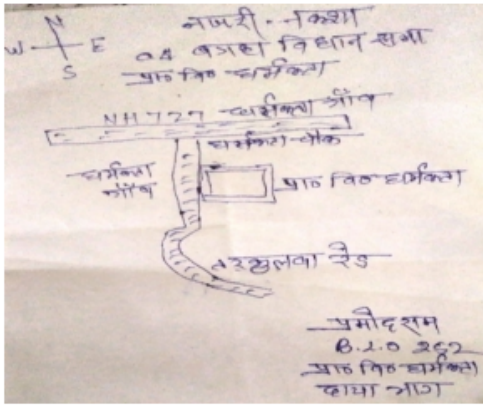 नजरी - नक्शा
N
W E
S
04 बगहा विधान सभा
प्रा० वि० धर्मकता
NH 727 धर्मकता गाँव
धर्मकता चौक
धर्मकता
गाँव
प्रा० वि० धर्मकता
तरुअनवा रोड
प्रमोद राम
B.L.O 262
प्रा० वि० धर्मकता
बाया भाग